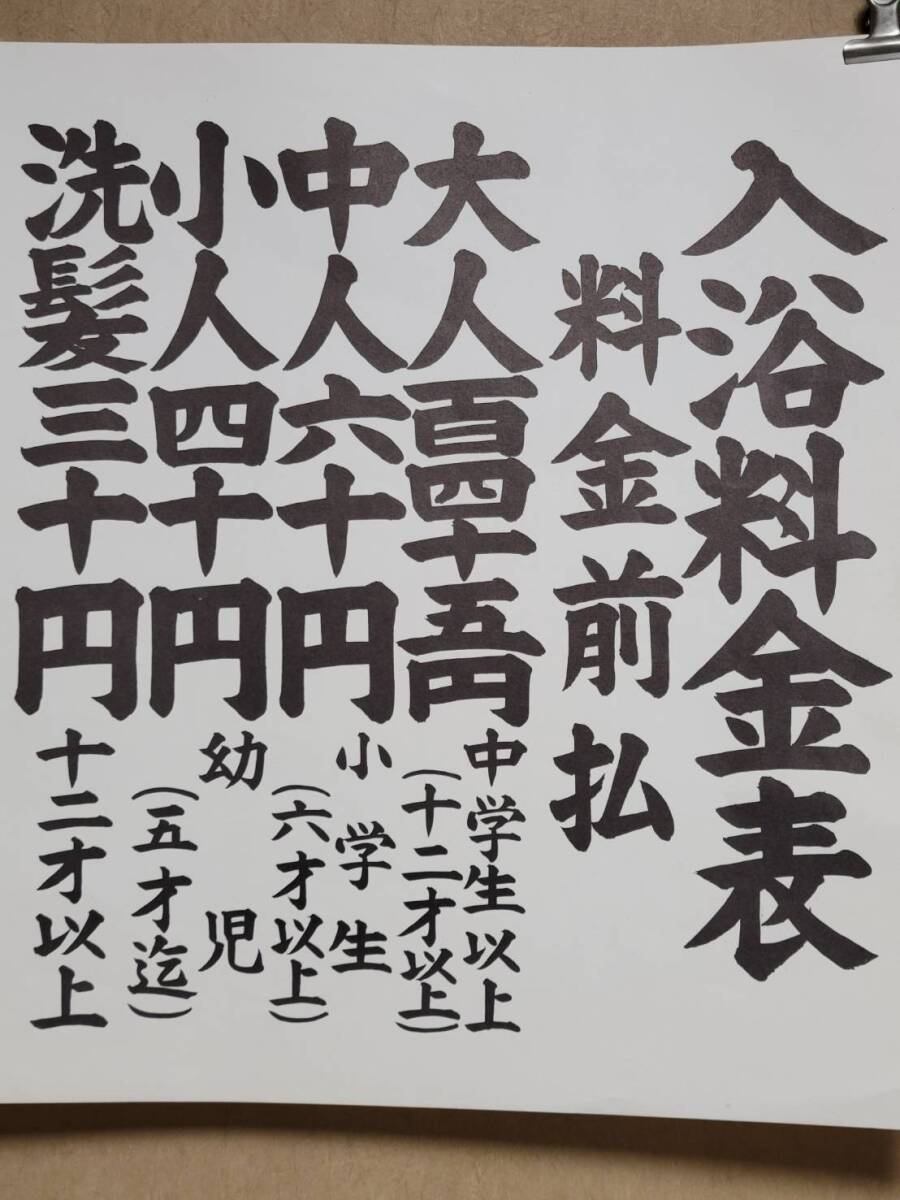 入浴料金表
料金前払
大人百四十五円
中学生以上
(十二才以上)
中人六十円
小学生
(六才以上)
小人四十円
幼児
(五才迄)
洗髪三十円
十二才以上